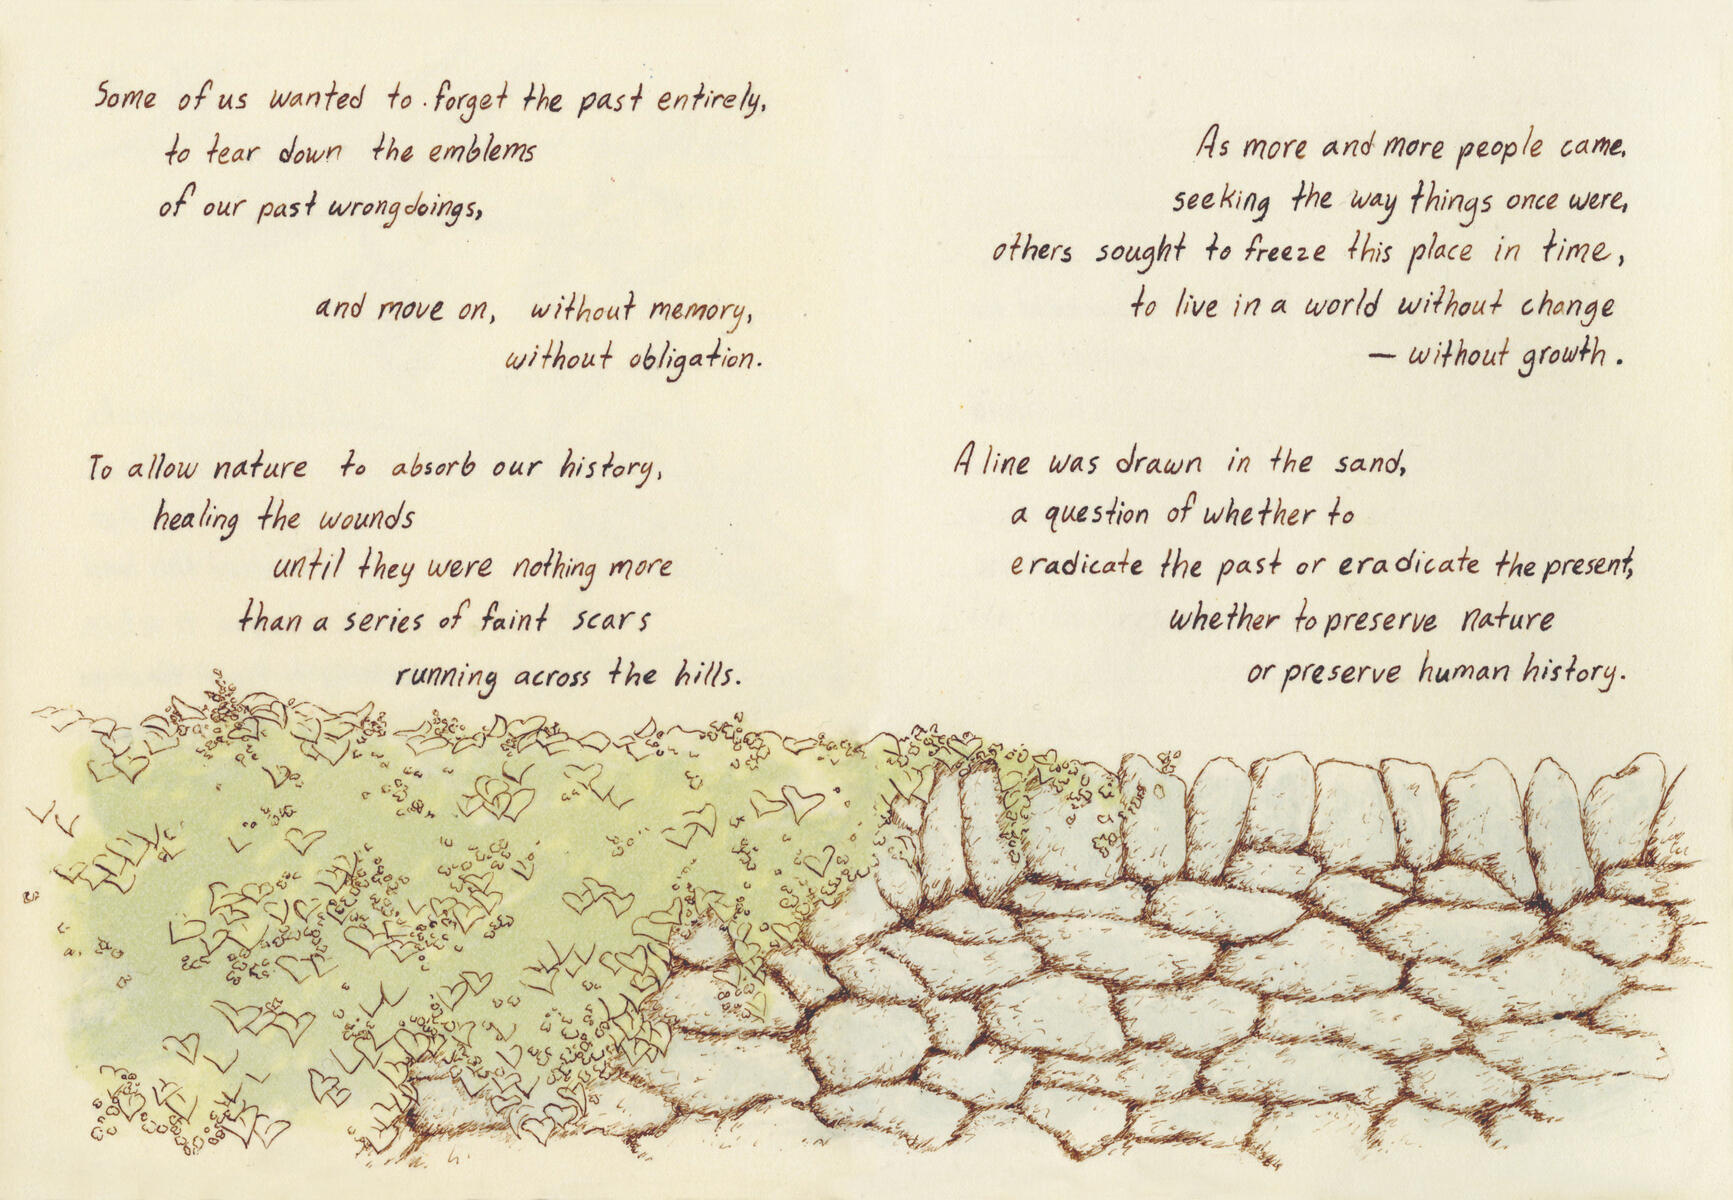 Some of us wanted to forget the past entirely,
to tear down the emblems
of our past wrongdoings,
and move on, without memory,
without obligation.
To allow nature to absorb our history,
healing the wounds
until they were nothing more
than a series of faint scars
running across the hills.
As more and more people came,
seeking the way things once were,
others sought to freeze this place in time,
to live in a world without change
— without growth.
A line was drawn in the sand,
a question of whether to
eradicate the past or eradicate the present,
whether to preserve nature
or preserve human history.